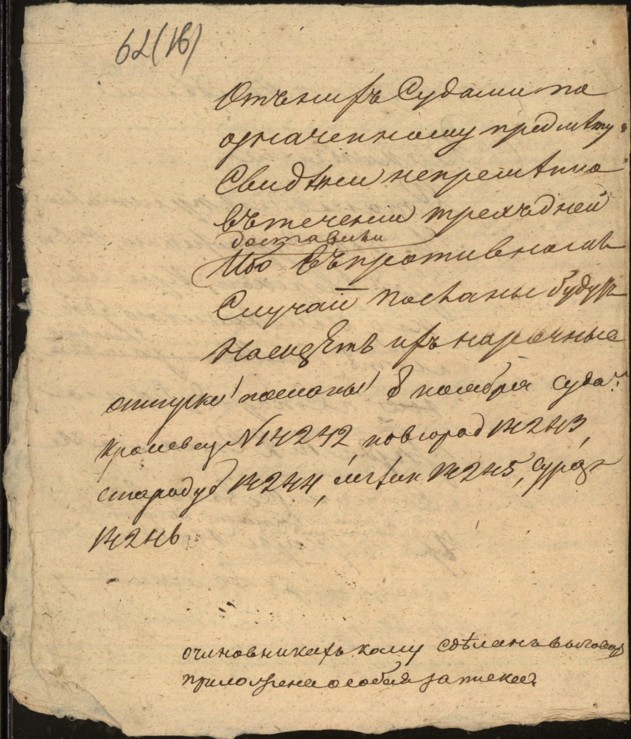 62(16)
Отъ нихъ Судами по
означенному предмѣту
Свидѣнии непремѣнно
въ течении трехъ дней
доставили
Ибо въ противномъ
Случаи посланы будутъ
На счетъ ихъ нарочные
отпуски посланы 8 ноября суда:
Кролевец № 14242, новгород 14243,
стародуб 14244, мглин 14245, сураж
14246
о чиновникахъ кому сдѣланъ выговор
приложена особая записка